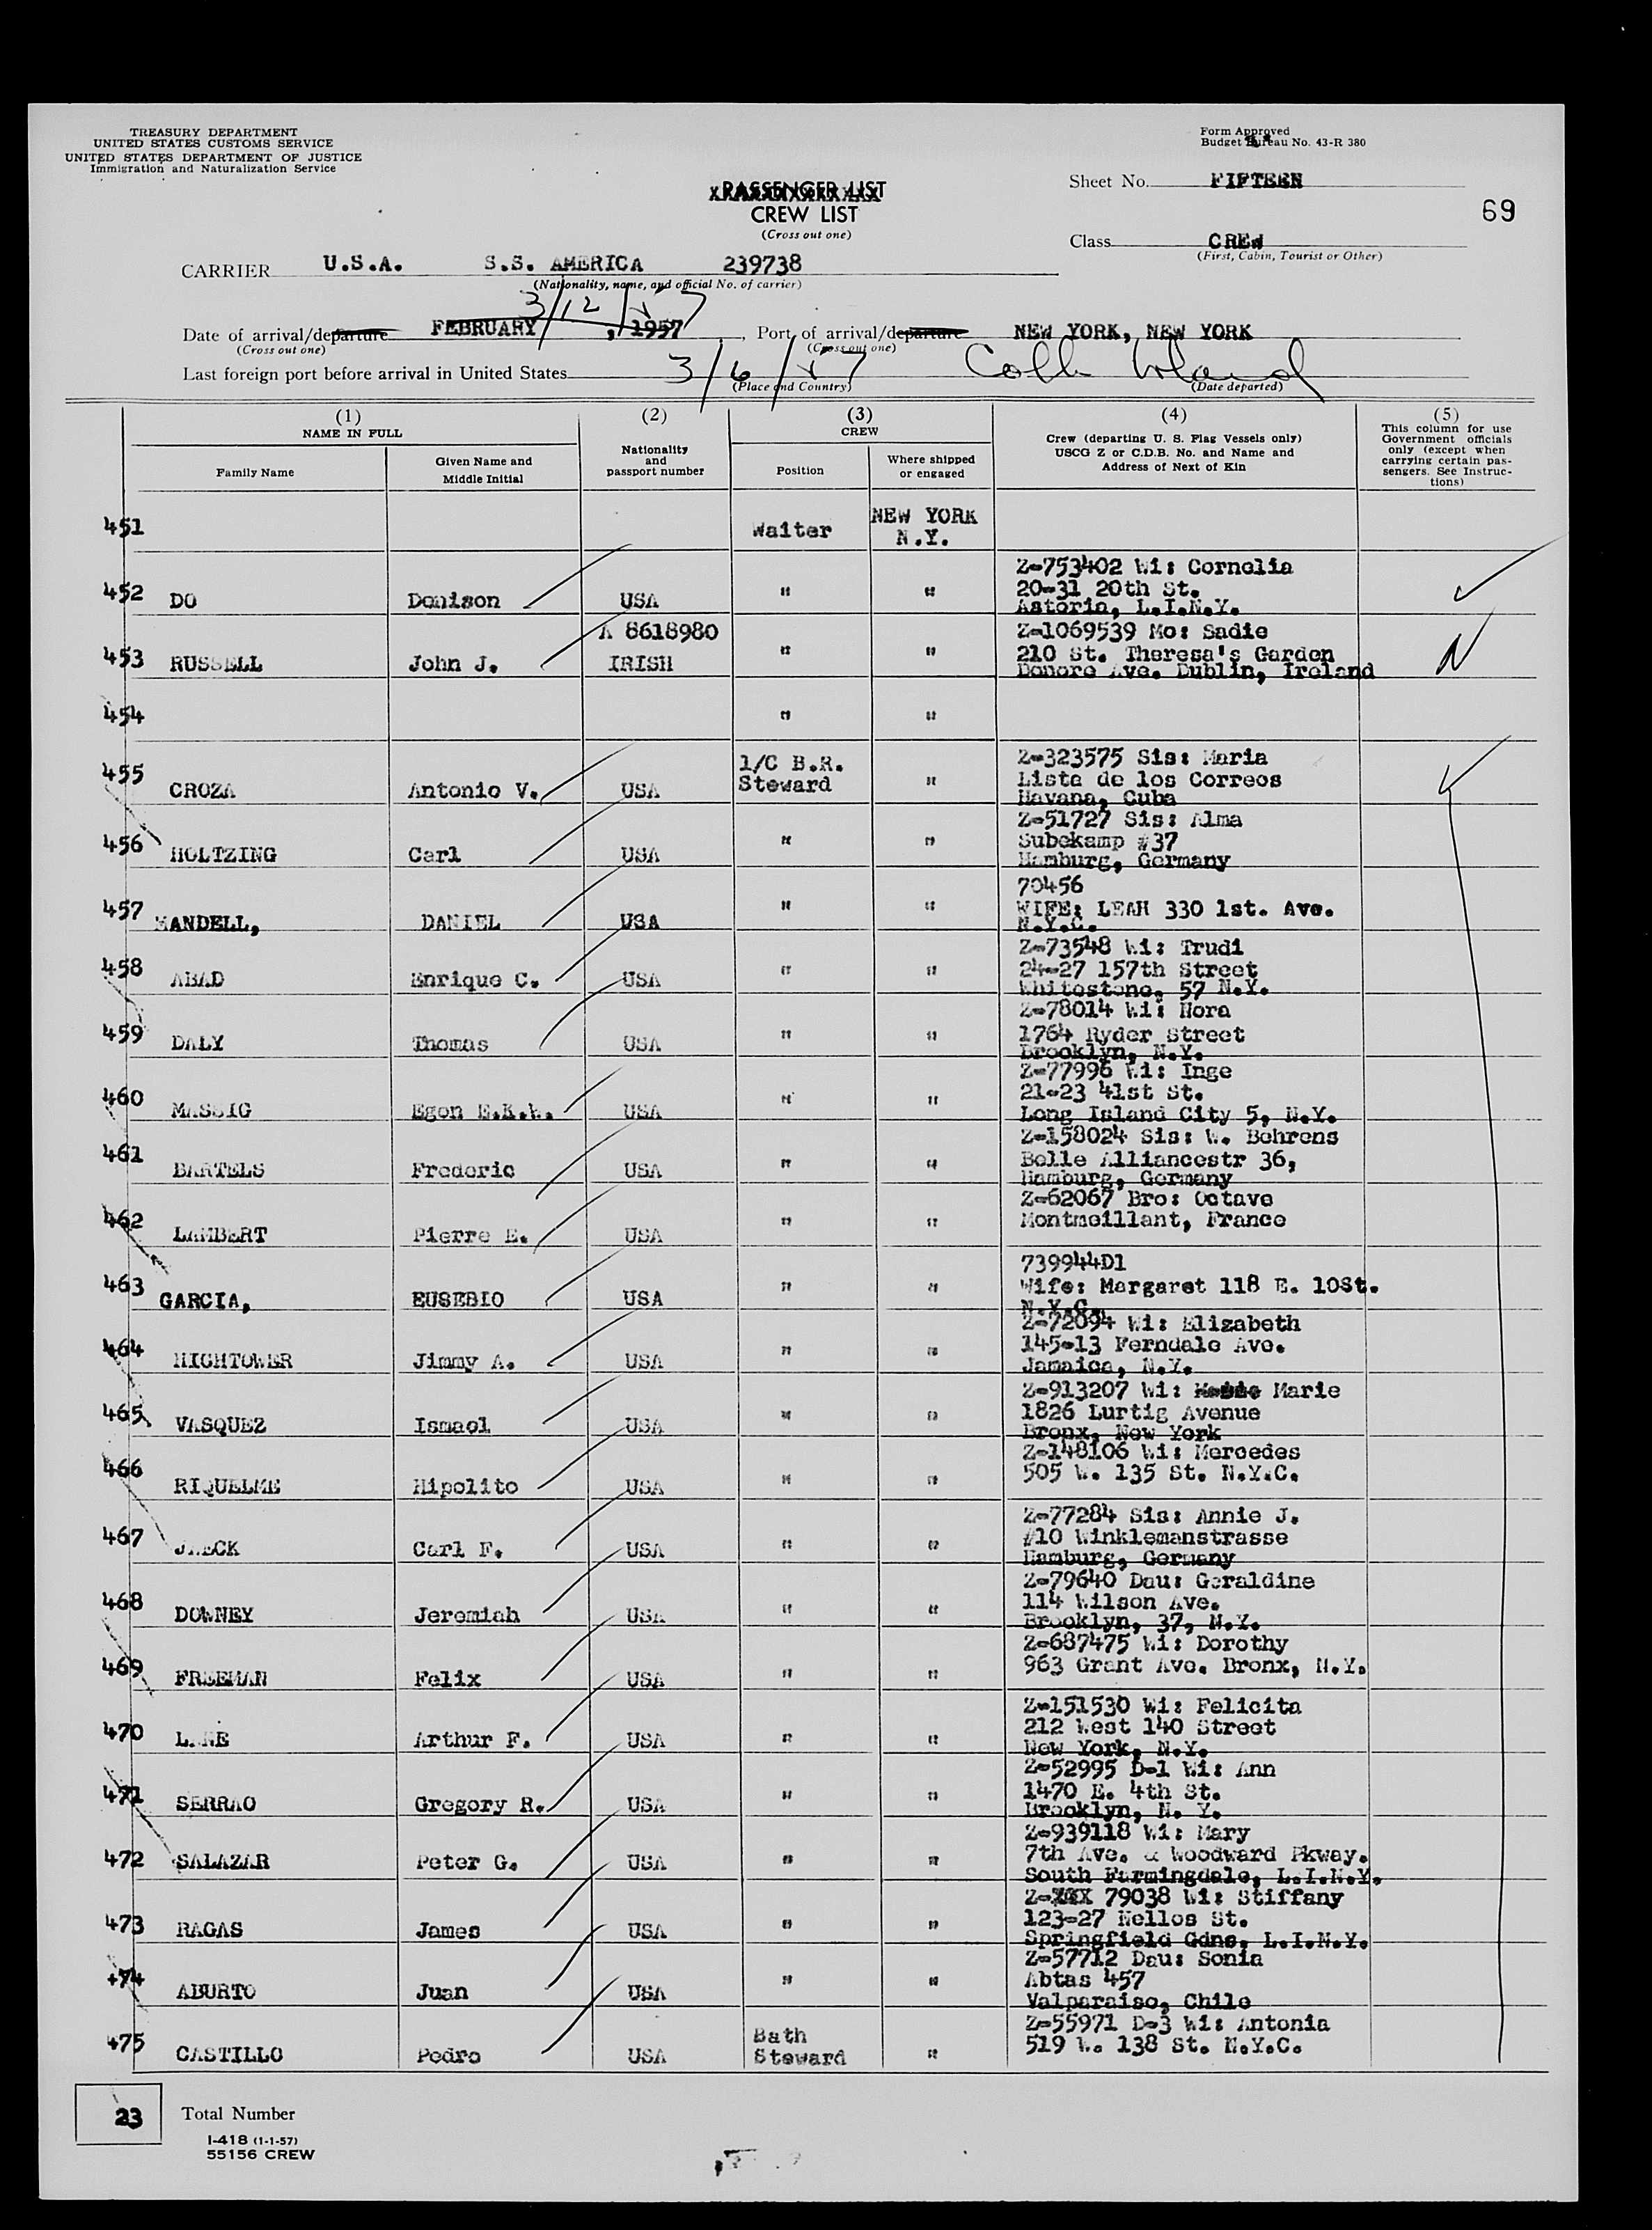 TREASURY DEPARTMENT
UNITED STATES CUSTOMS SERVICE
UNITED STATES DEPARTMENT OF JUSTICE
Immigration and Naturalization Service
Form Approved
Budget Bureau No. 43-R 380
Sheet No. FIFTEEN
69
PASSENGER LIST
CREW LIST
(Cross out one)
Class CREW
(First, Cabin, Tourist or Other)
CARRIER U.S.A. S.S. AMERICA 239738
(Nationality, name, and official No. of carrier)
3/12/57
Date of arrival/departure FEBRUARY , 1957, Port of arrival/departure NEW YORK, NEW YORK
(Cross out one) (Cross out one)
Last foreign port before arrival in United States 3/6/57 Cobh
(Place and Country) (Date departed)
(1) NAME IN FULL
Family Name
Given Name and Middle Initial
(2) Nationality and passport number
(3) CREW
Position
Where shipped or engaged
(4) Crew (departing U. S. Flag Vessels only) USCG Z or C.D.B. No. and Name and Address of Next of Kin
(5) This column for use Government officials only (except when carrying certain passengers. See Instructions)
451 Waiter NEW YORK N.Y.
452 DO Denison USA " " Z-753402 Wi: Cornelia
20-31 20th St.
Astoria, L.I.N.Y.
453 RUSSELL John J. A 8618980 IRISH " " Z-1069539 Mo: Sadie
210 St. Theresa's Garden
Donore Ave. Dublin, Ireland
N
454 " "
455 CROZA Antonio V. USA 1/C B.R. Steward " Z-323575 Sis: Maria
Lista de los Correos
Havana, Cuba
456 HOLTZING Carl USA " " Z-51727 Sis: Alma
Subekamp #37
Hamburg, Germany
457 MANDELL, DANIEL USA " " 70456
WIFE: LEAH 330 1st. Ave.
N.Y.C.
458 ABAD Enrique C. USA " " Z-73548 Wi: Trudi
24-27 157th Street
Whitestone, 57 N.Y.
459 DALY Thomas USA " " Z-78014 Wi: Nora
1764 Ryder Street
Brooklyn, N.Y.
460 MASSIG Egon E.K.W. USA " " Z-77996 Wi: Inge
21-23 41st St.
Long Island City 5, N.Y.
461 BARTELS Frederic USA " " Z-158024 Sis: W. Behrens
Belle Alliancestr 36,
Hamburg, Germany
462 LAMBERT Pierre E. USA " " Z-62067 Bro: Octave
Montmeillant, France
463 GARCIA, EUSEBIO USA " " 739944D1
Wife: Margaret 118 E. 10St.
N.Y.C.
464 HIGHTOWER Jimmy A. USA " " Z-72094 Wi: Elizabeth
145-13 Ferndale Ave.
Jamaica, N.Y.
465 VASQUEZ Ismael USA " " Z-913207 Wi: Marie
1826 Lurtig Avenue
Bronx, New York
466 RIQUELME Hipolito USA " " Z-148106 Wi: Mercedes
505 W. 135 St. N.Y.C.
467 JAECK Carl F. USA " " Z-77284 Sis: Annie J.
#10 Winklemanstrasse
Hamburg, Germany
468 DOWNEY Jeremiah USA " " Z-79640 Dau: Geraldine
114 Wilson Ave.
Brooklyn, 37, N.Y.
469 FREEMAN Felix USA " " Z-687475 Wi: Dorothy
963 Grant Ave. Bronx, N.Y.
470 LANE Arthur F. USA " " Z-151530 Wi: Felicita
212 West 140 Street
New York, N.Y.
471 SERRAO Gregory R. USA " " Z-52995 D-1 Wi: Ann
1470 E. 4th St.
Brooklyn, N. Y.
472 SALAZAR Peter G. USA " " Z-939118 Wi: Mary
7th Ave. & Woodward Pkway.
South Farmingdale, L.I.N.Y.
473 RAGAS James USA " " Z- 79038 Wi: Stiffany
123-27 Nellos St.
Springfield Gdns. L.I.N.Y.
474 ABURTO Juan USA " " Z-57712 Dau: Sonia
Abtas 457
Valparaiso, Chile
475 CASTILLO Pedro USA Bath Steward " Z-55971 D-3 Wi: Antonia
519 W. 138 St. N.Y.C.
23 Total Number
I-418 (1-1-57)
55156 CREW